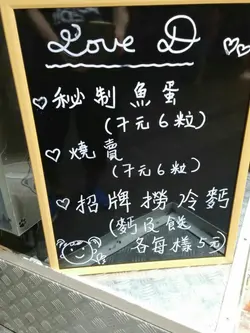 Love D
秘制魚蛋
(7元6粒)
燒賣
(7元6粒)
招牌撈冷麵
(麵及餸
各每樣5元)